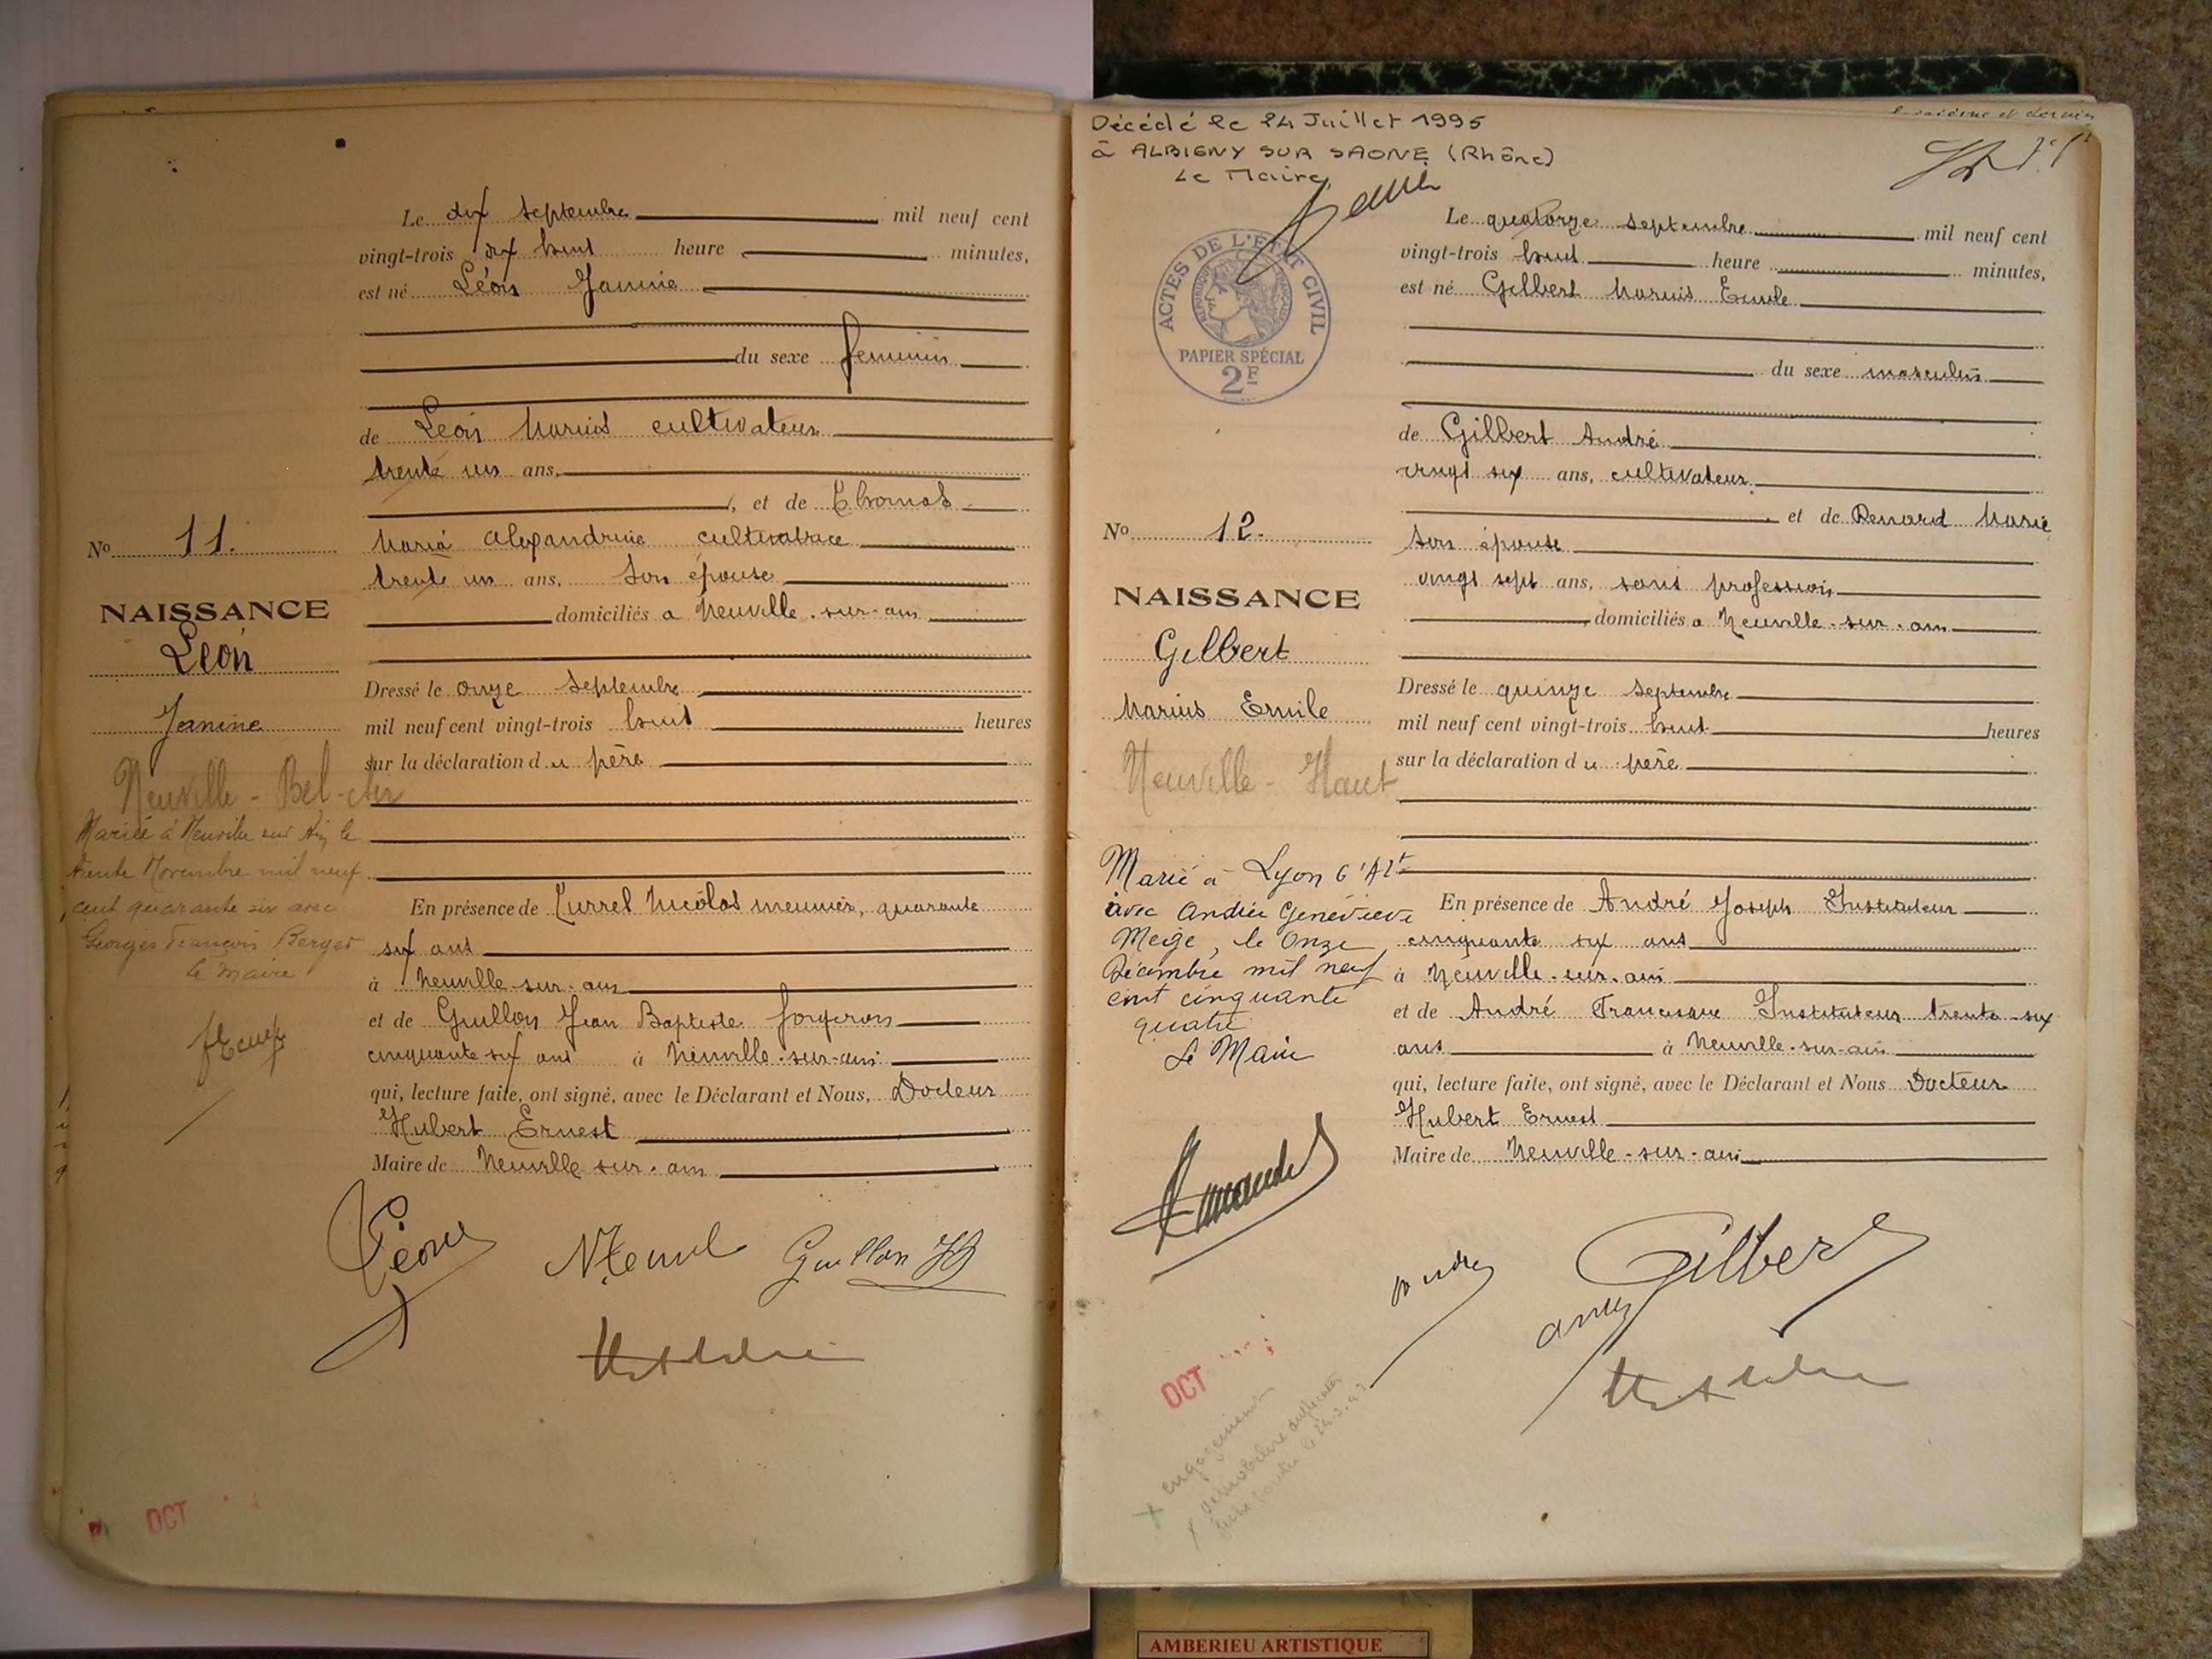 Le dix septembre mil neuf cent
vingt-trois dix huit heure minutes,
est né Léon Janine
du sexe feminin
de Léon Marius cultivateur
trente un ans,
, et de Thomas
Maria Alexandrine cultivatrice
trente un ans, son épouse
domiciliés a Neuville-sur-ain
Dressé le onze septembre
mil neuf cent vingt-trois huit heures
sur la déclaration du père
En présence de Nicolas meunier, quarante
six ans
à Neuville-sur-ain
et de Guillon Jean Baptiste forgeron
cinquante six ans à Neuville-sur-ain
qui, lecture faite, ont signé, avec le Déclarant et Nous, Docteur
Hubert Ernest
Maire de Neuville sur-ain
No 11.
NAISSANCE
Léon
Janine
Neuville - Bel-Air
Mariée à Neuville sur Ain le
trente Novembre mil neuf
cent quarante six avec
Georges François Berger
le Maire
Léon
Guillon JB
OCT
Décédé le 24 Juillet 1995
à ALBIGNY SUR SAONE (Rhône)
Le Maire,
ACTES DE L'ÉTAT CIVIL
PAPIER SPÉCIAL
2F
Le quatorze septembre mil neuf cent
vingt-trois huit heure minutes,
est né Gilbert Marius Emile
du sexe masculin
de Gilbert André
vingt six ans, cultivateur
et de Renard Marie
son épouse
vingt sept ans, sans profession
domiciliés a Neuville-sur-ain
Dressé le quinze septembre
mil neuf cent vingt-trois huit heures
sur la déclaration du père
En présence de André Joseph Instituteur
cinquante six ans
à Neuville-sur-ain
et de André Francisque Instituteur trente-six
ans à Neuville-sur-ain
qui, lecture faite, ont signé, avec le Déclarant et Nous Docteur
Hubert Ernest
Maire de Neuville-sur-ain
No 12.
NAISSANCE
Gilbert
Marius Emile
Neuville - Haut
Marié à Lyon 6e Art
avec Andrée Geneviève
Meige, le Onze
Décembre mil neuf
cent cinquante
quatre
Le Maire
Gilbert
OCT
engagement
AMBERIEU ARTISTIQUE